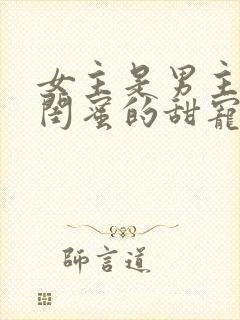 女主是男主
闺蜜的甜宠
師言道